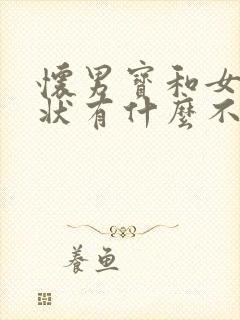 懷男寶和女
狀有什麼不
養魚